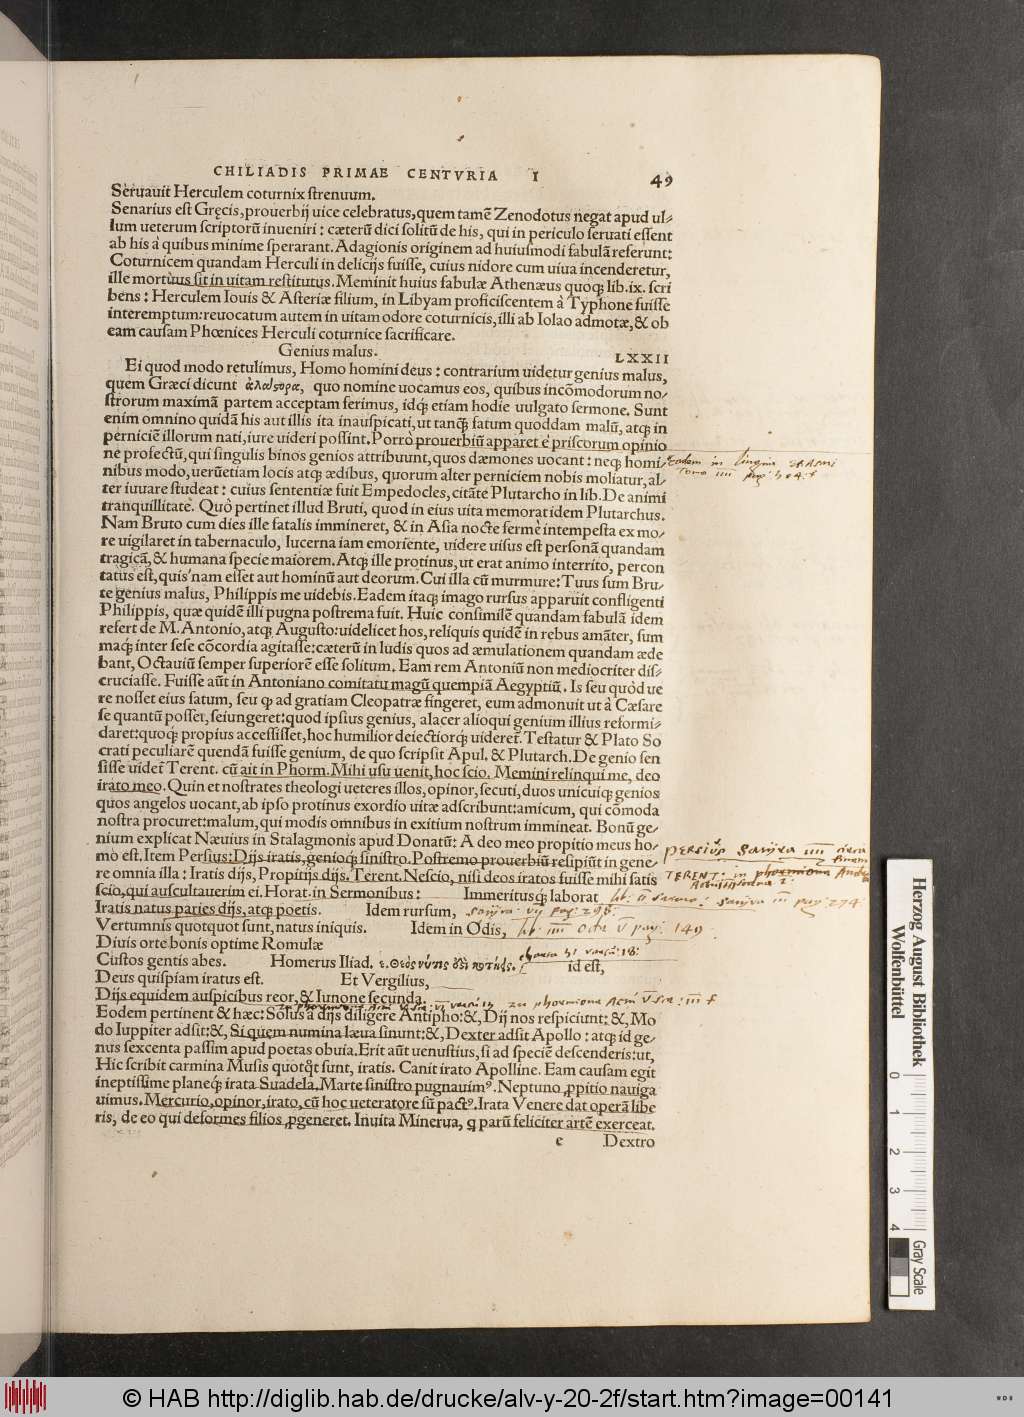 CHILIADIS PRIMAE CENTVRIA I 49
Seruauit Herculem coturnix strenuum.
Senarius est Gręcis, prouerbij uice celebratus, quem tamẽ Zenodotus negat apud ul-
lum ueterum scriptorũ inueniri: cæterũ dici solitũ de his, qui in periculo seruati essent
ab his à quibus minime sperarant. Adagionis originem ad huiusmodi fabulã referunt:
Coturnicem quandam Herculi in delicijs fuisse, cuius nidore cum uiua incenderetur,
ille mortuus sit in uitam restitutus. Meminit huius fabulæ Athenæus quoq; lib. ix. scri
bens: Herculem Iouis & Asteriæ filium, in Libyam proficiscentem à Typhone fuisse
interemptum: reuocatum autem in uitam odore coturnicis, illi ab Iolao admotæ, & ob
eam causam Phœnices Herculi coturnice sacrificare.
Genius malus. LXXII
Ei quod modo retulimus, Homo homini deus: contrarium uidetur genius malus,
quem Græci dicunt quo nomine uocamus eos, quibus incõmodorum no-
strorum maximã partem acceptam ferimus, idq; etiam hodie uulgato sermone. Sunt
enim omnino quidã his aut illis ita inauspicati, ut tanq; fatum quoddam malũ, atq; in
perniciẽ illorum nati, iure uideri possint. Porrò prouerbiũ apparet è priscorum opinio
ne profectũ, qui singulis binos genios attribuunt, quos dæmones uocant: neq; homi-
nibus modo, uerũetiam locis atq; ædibus, quorum alter perniciem nobis moliatur, al-
ter iuuare studeat: cuius sententiæ fuit Empedocles, citãte Plutarcho in lib. De animi
tranquillitate. Quò pertinet illud Bruti, quod in eius uita memorat idem Plutarchus.
Nam Bruto cum dies ille fatalis immineret, & in Asia nocte fermè intempesta ex mo-
re uigilaret in tabernaculo, lucerna iam emoriente, uidere uisus est personã quandam
tragicã, & humana specie maiorem. Atq; ille protinus, ut erat animo interrito, percon
tatus est, quis'nam esset aut hominũ aut deorum. Cui illa cũ murmure: Tuus sum Bru-
te genius malus, Philippis me uidebis. Eadem itaq; imago rursus apparuit confligenti
Philippis, quæ quidẽ illi pugna postrema fuit. Huic consimilẽ quandam fabulã idem
refert de M. Antonio, atq; Augusto: uidelicet hos, reliquis quidẽ in rebus amãter, sum
maq; inter sese cõcordia agitasse: cæterũ in ludis quos ad æmulationem quandam æde
bant, Octauiũ semper superiorẽ esse solitum. Eam rem Antoniũ non mediocriter dis-
cruciasse. Fuisse aũt in Antoniano comitatu magũ quempiã Aegyptiũ. Is seu quòd ue
re nosset eius fatum, seu ꝙ ad gratiam Cleopatræ fingeret, eum admonuit ut à Cæsare
se quantũ posset, seiungeret: quod ipsius genius, alacer alioqui genium illius reformi-
daret: quoq; propius accessisset, hoc humilior deiectiorq; uideret̃. Testatur & Plato So
crati peculiarẽ quendã fuisse genium, de quo scripsit Apul. & Plutarch. De genio sen
sisse uidet̃ Terent. cũ ait in Phorm. Mihi usu uenit, hoc scio. Memini relinqui me, deo
irato meo. Quin et nostrates theologi ueteres illos, opinor, secuti, duos unicuiq; genios
quos angelos uocant, ab ipso protinus exordio uitæ adscribunt: amicum, qui cõmoda
nostra procuret: malum, qui modis omnibus in exitium nostrum immineat. Bonũ ge-
nium explicat Næuius in Stalagmonis apud Donatũ: A deo meo propitio meus ho-
mo est. Item Persius: Dijs iratis, genioq; sinistro. Postremo prouerbiũ resipiũt in gene-
re omnia illa: Iratis dijs, Propitijs dijs. Terent. Nescio, nisi deos iratos fuisse mihi satis
scio, qui auscultauerim ei. Horat. in Sermonibus: Immeritusq; laborat
Iratis natus paries dijs, atq; poetis. Idem rursum,
Vertumnis quotquot sunt, natus iniquis. Idem in Odis,
Diuis orte bonis optime Romulæ
Custos gentis abes. Homerus Iliad. id est,
Deus quispiam iratus est. Et Vergilius,
Dijs equidem auspicibus reor, & Iunone secunda.
Eodem pertinent & hæc: Solus à dijs diligere Antipho: &, Dij nos respiciunt: &, Mo
do Iuppiter adsit: &, Si quem numina læua sinunt: &, Dexter adsit Apollo: atq; id ge-
nus sexcenta passim apud poetas obuia. Erit aũt uenustius, si ad speciẽ descenderis: ut,
Hic scribit carmina Musis quotq̃t sunt, iratis. Canit irato Apolline. Eam causam egit
ineptissime planeq; irata Suadela. Marte sinistro pugnauimꝰ. Neptuno ꝓpitio nauiga
uimus. Mercurio, opinor, irato, cũ hoc ueteratore sũ pactꝰ. Irata Venere dat operã libe
ris, de eo qui deformes filios ꝓgeneret. Inuita Minerua, q parũ feliciter artẽ exerceat.
e Dextro
Herzog August Bibliothek
Wolfenbüttel
0 1 2 3 4
Gray Scale
© HAB http://diglib.hab.de/drucke/alv-y-20-2f/start.htm?image=00141